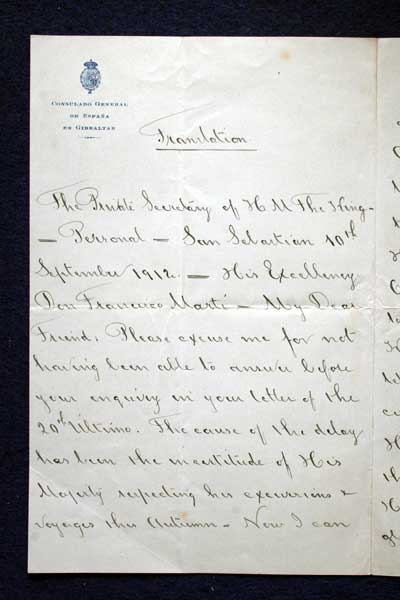 CONSULADO GENERAL
DE ESPAÑA
EN GIBRALTAR
Translation
The Private Secretary of H M The King -
- Personal - San Sebastian 10th
September 1912. - His Excellency
Don Francisco Marti - My Dear
Friend: Please excuse me for not
having been able to answer before
your enquiry in your letter of the
20th Ultimo. The cause of the delay
has been the incertitude of His
Majesty respecting his excursions &
voyages this Autumn - Now I can